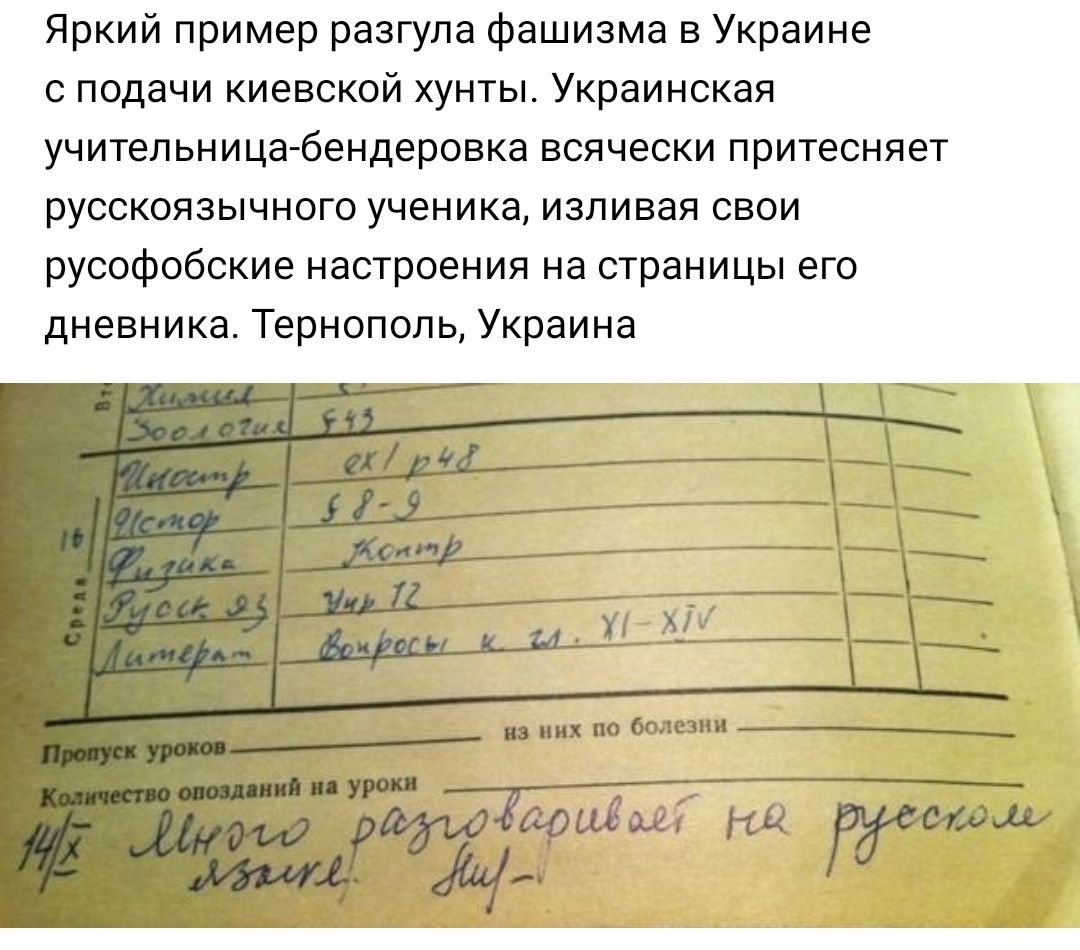 Яркий пример разгула фашизма в Украине
с подачи киевской хунты. Украинская
учительница-бендеровка всячески притесняет
русскоязычного ученика, изливая свои
русофобские настроения на страницы его
дневника. Тернополь, Украина
Химия
Зоология § 43
Иностр ex 1 p 48
Истор § 8-9
16
Физика Контр
Среда
Русск яз Упр 12
Литерат Вопросы к гл. XI-XIV
Пропуск уроков из них по болезни
Количество опозданий на уроки
14/X Много разговаривает на русском
языке.